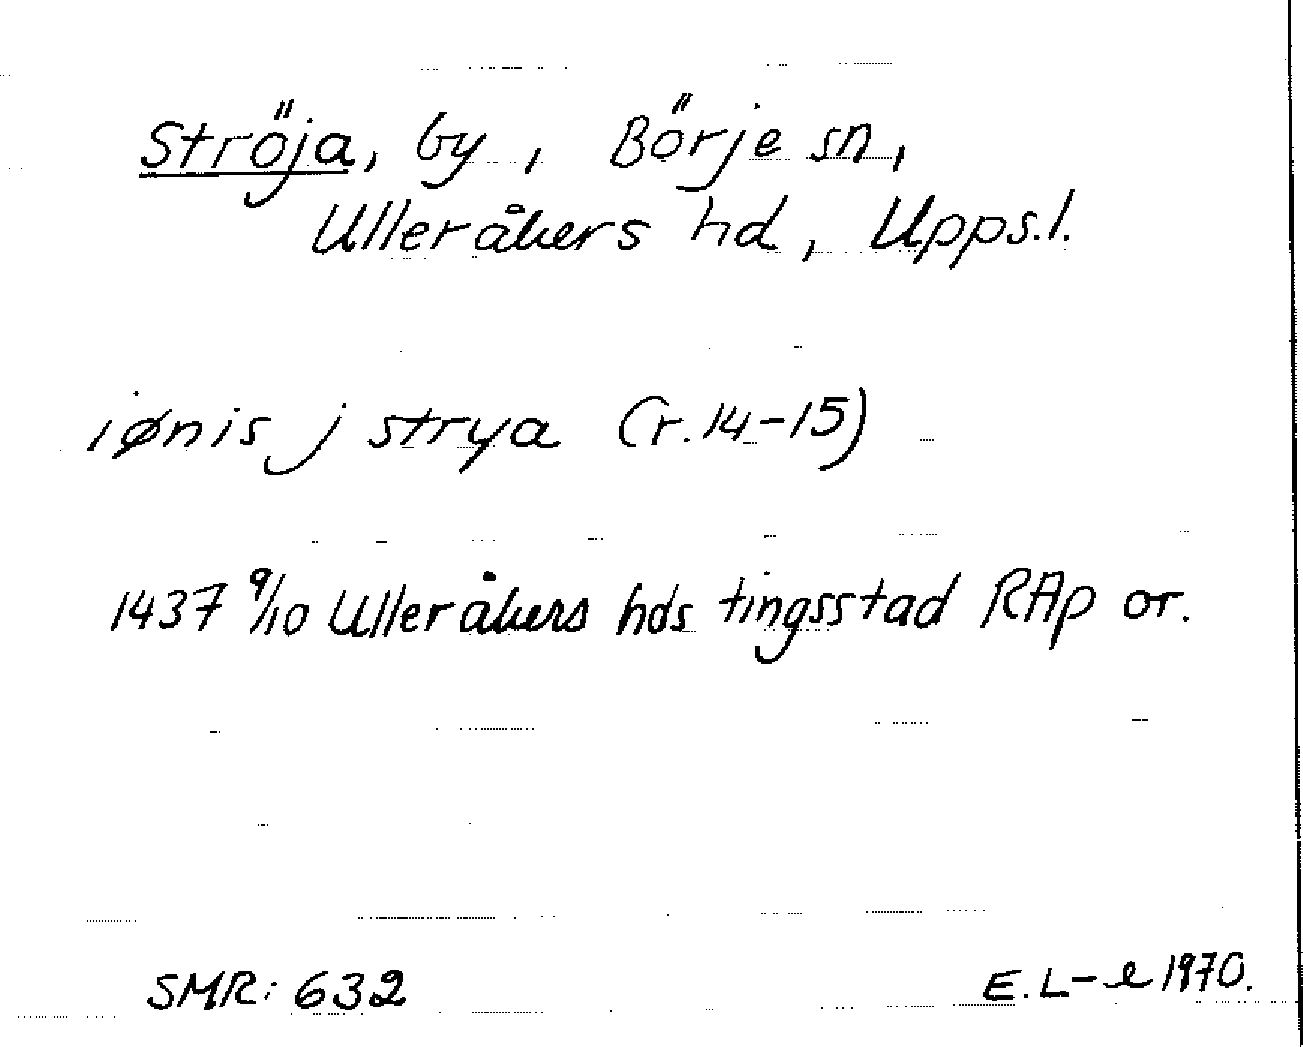 Ströja, by, Börje sn,
Ulleråkers hd, Upps.l.
iønis j strya (r. 14-15)
1437 9/10 Ulleråkers hds tingsstad RAp or.
SMR: 632
E. L-l 1970.